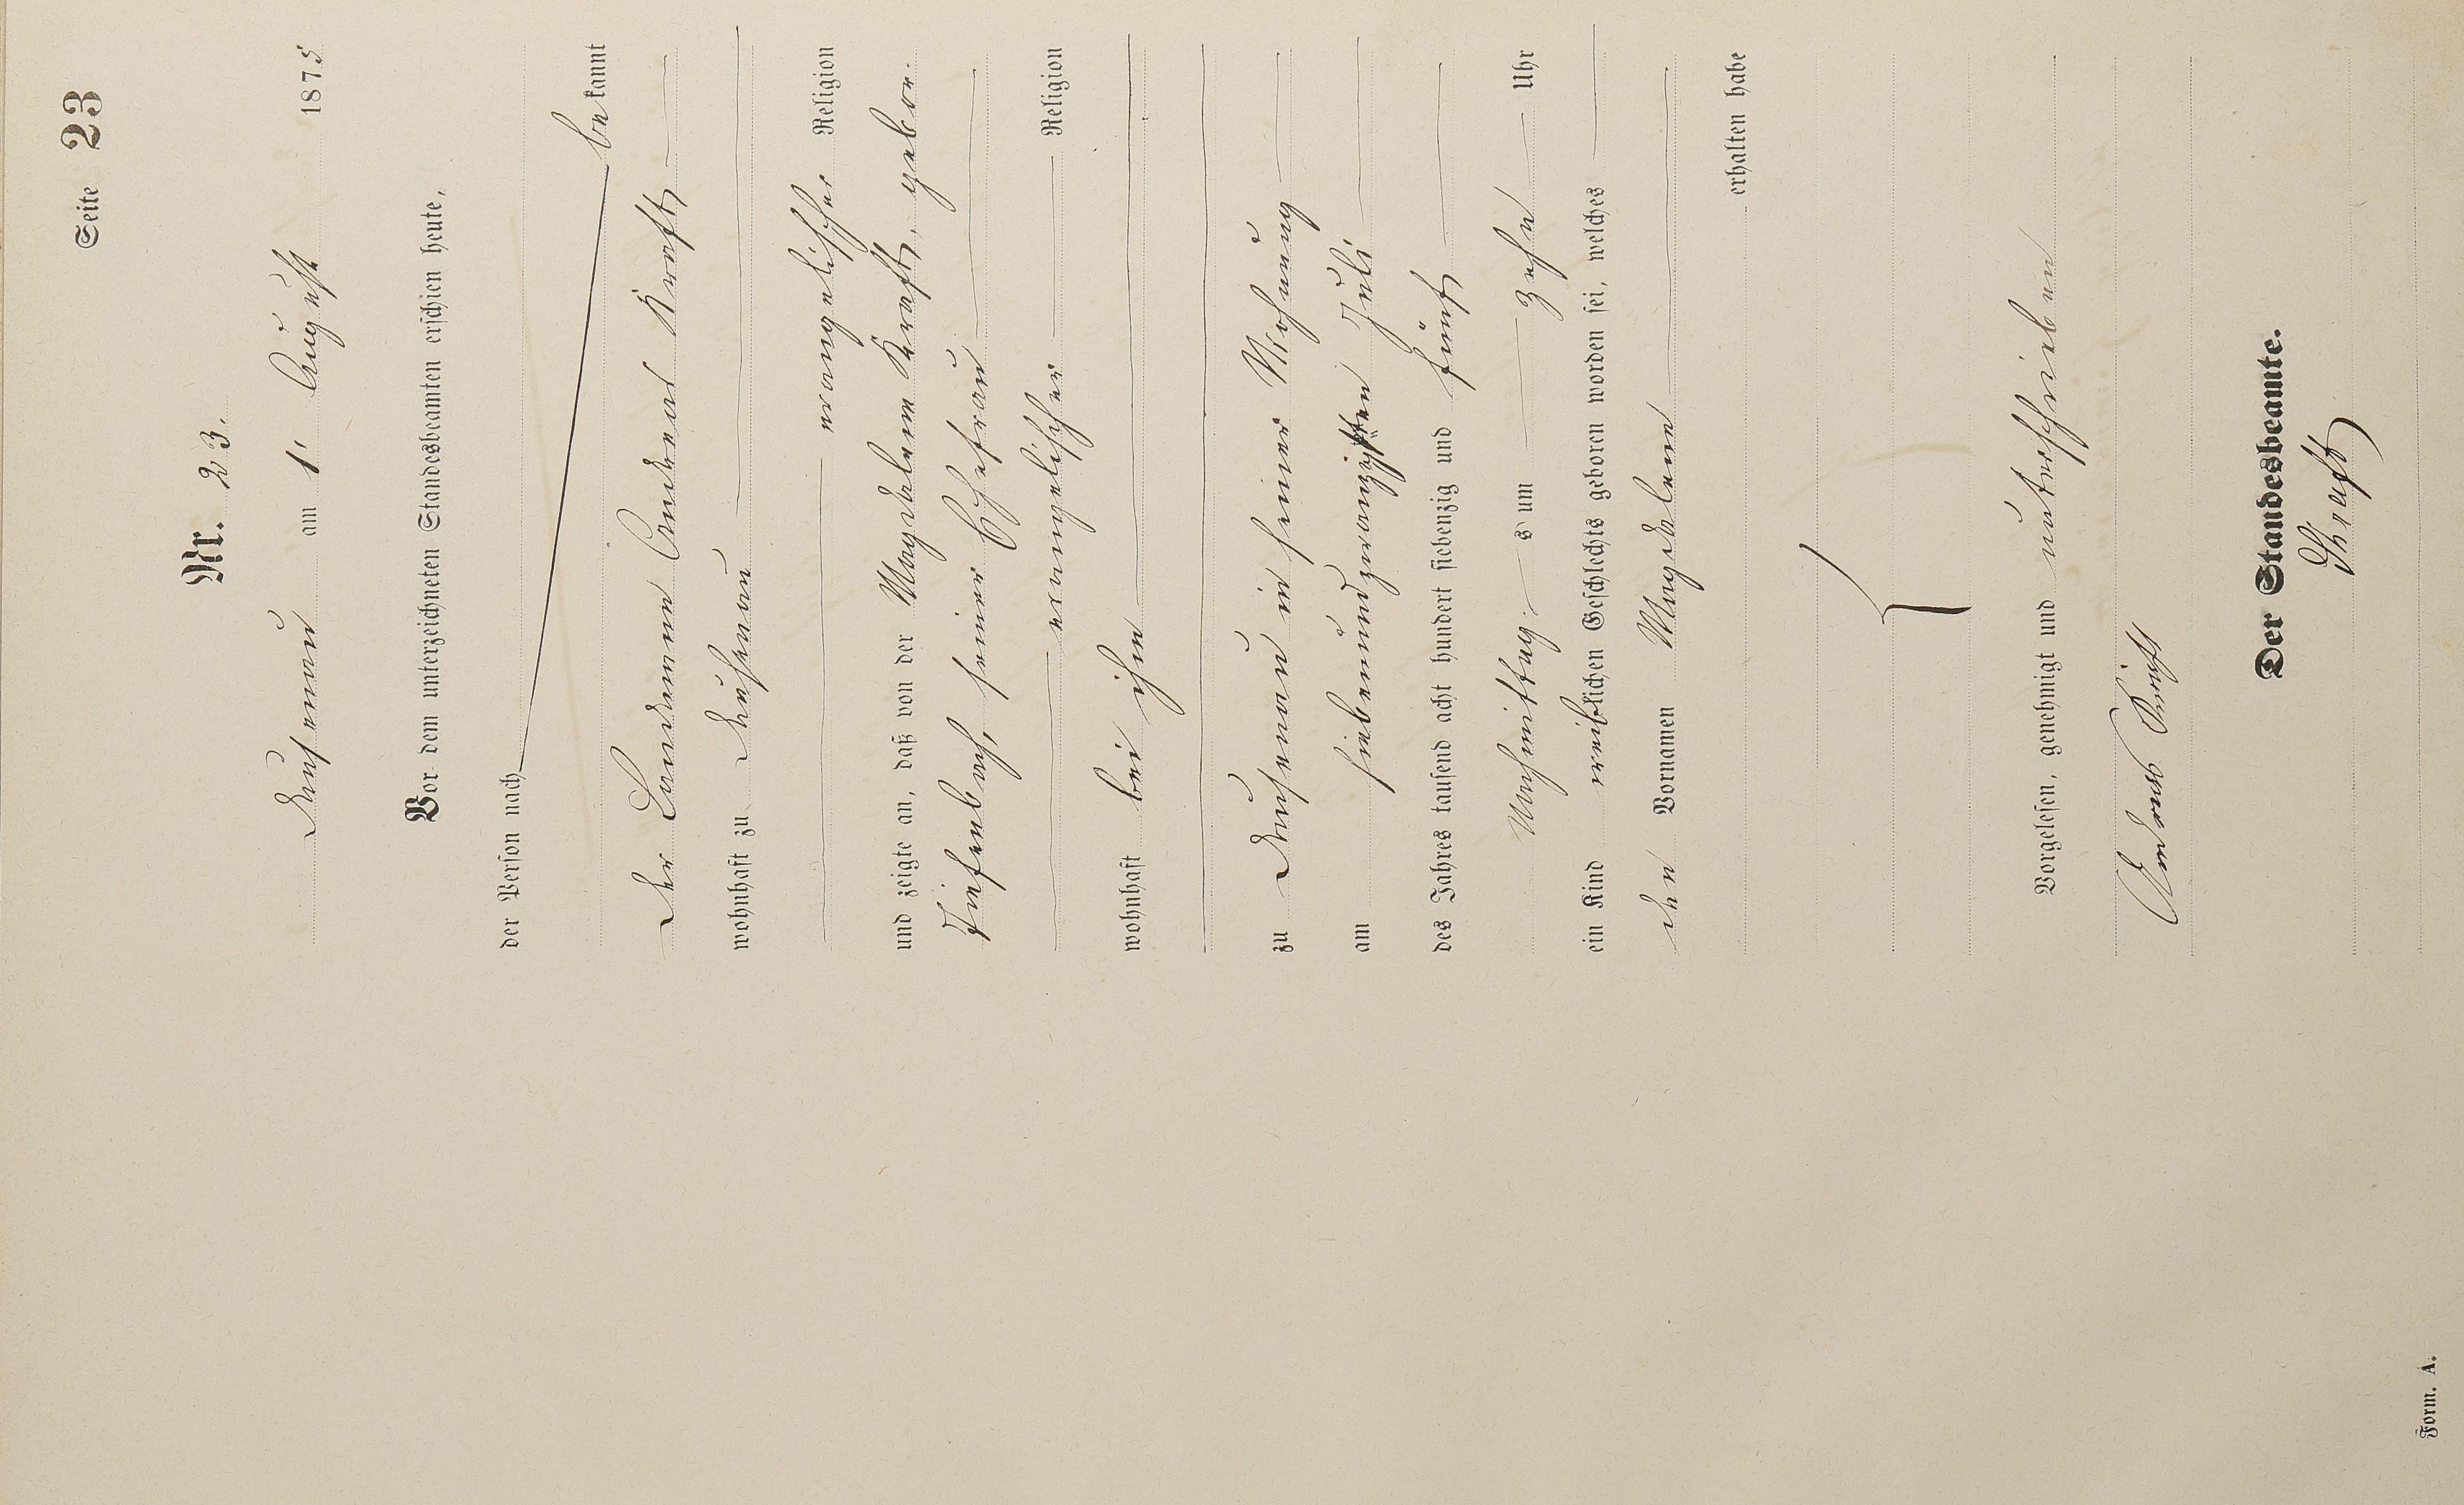 Seite 23
Nr. 23.
Dausenau am 1. August 1875
Vor dem unterzeichneten Standesbeamten erschien heute,
der Person nach
bekannt
der Landmann Andreas Kraft
wohnhaft zu Dausenau
evangelischer Religion
und zeigte an, daß von der Magdalene Kraft, gebor.
seiner Ehefrau
evangelischer Religion
wohnhaft bei ihm
zu Dausenau in seiner Wohnung
am siebenundzwanzigsten Juli
des Jahres tausend acht hundert siebenzig und fünf
Nachmittags um zehn Uhr
ein Kind weiblichen Geschlechts geboren worden sei, welches
den Vornamen Magdalene
erhalten habe
Vorgelesen, genehmigt und unterschrieben
Andreas Kraft
Der Standesbeamte.
Form. A.